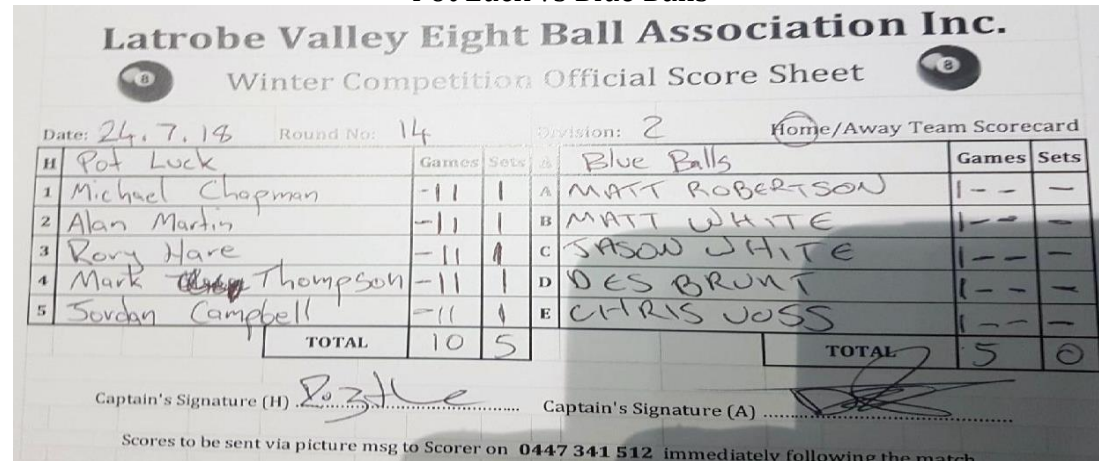 Latrobe Valley Eight Ball Association Inc.
8 Winter Competition Official Score Sheet 8
Date: 24.7.18 Round No: 14 Division: 2 Home/Away Team Scorecard
H Pot Luck Games Sets A Blue Balls Games Sets
1 Michael Chapman -11 1 A MATT ROBERTSON 1-- -
2 Alan Martin -11 1 B MATT WHITE 1-- -
3 Rory Hare -11 1 C JASON WHITE 1-- -
4 Mark Thompson -11 1 D DES BRUNT 1-- -
5 Jordan Campbell -11 1 E CHRIS VOSS 1-- -
TOTAL 10 5 TOTAL 5 0
Captain's Signature (H) Captain's Signature (A)
Scores to be sent via picture msg to Scorer on 0447 341 512 immediately following the match